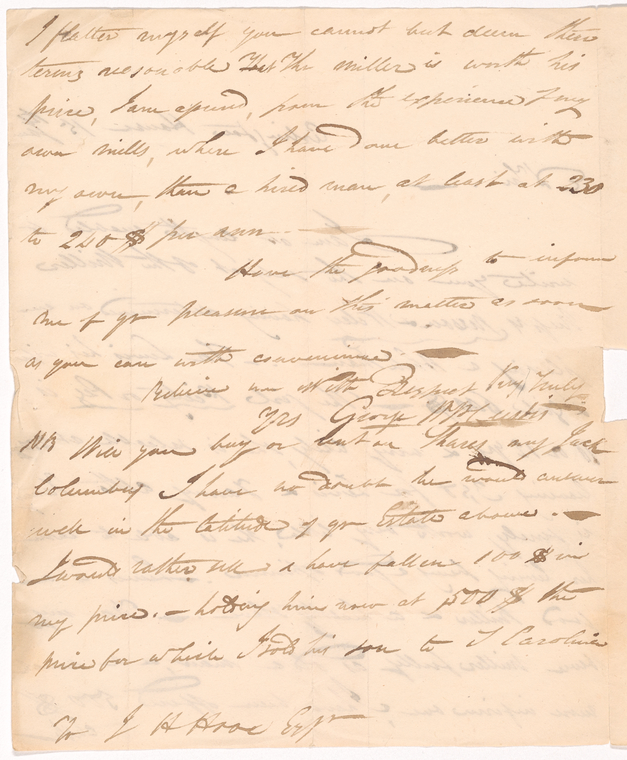 I flatter myself you cannot but deem these
terms reasonable That The miller is worth his
price, I am assured, from the experience of my
own mills, where I have done better with
my own, than a hired man, at least at 230
to 240 $ per ann. —
Have the goodness to inform
me of yr pleasure on this matter as soon
as you can with convenience. —
Believe me With Respect Very Truly
Yrs George W P Custis
NB Will you buy or put on Shares my Jack
Columbus I have no doubt he would answer
well in the latitude of yr Estate above. —
I would rather sell & have fallen 100 $ in
my price. — holding him now at 500 $ the
price for which I sold his son to S Carolina
To J H Hooe Esqr